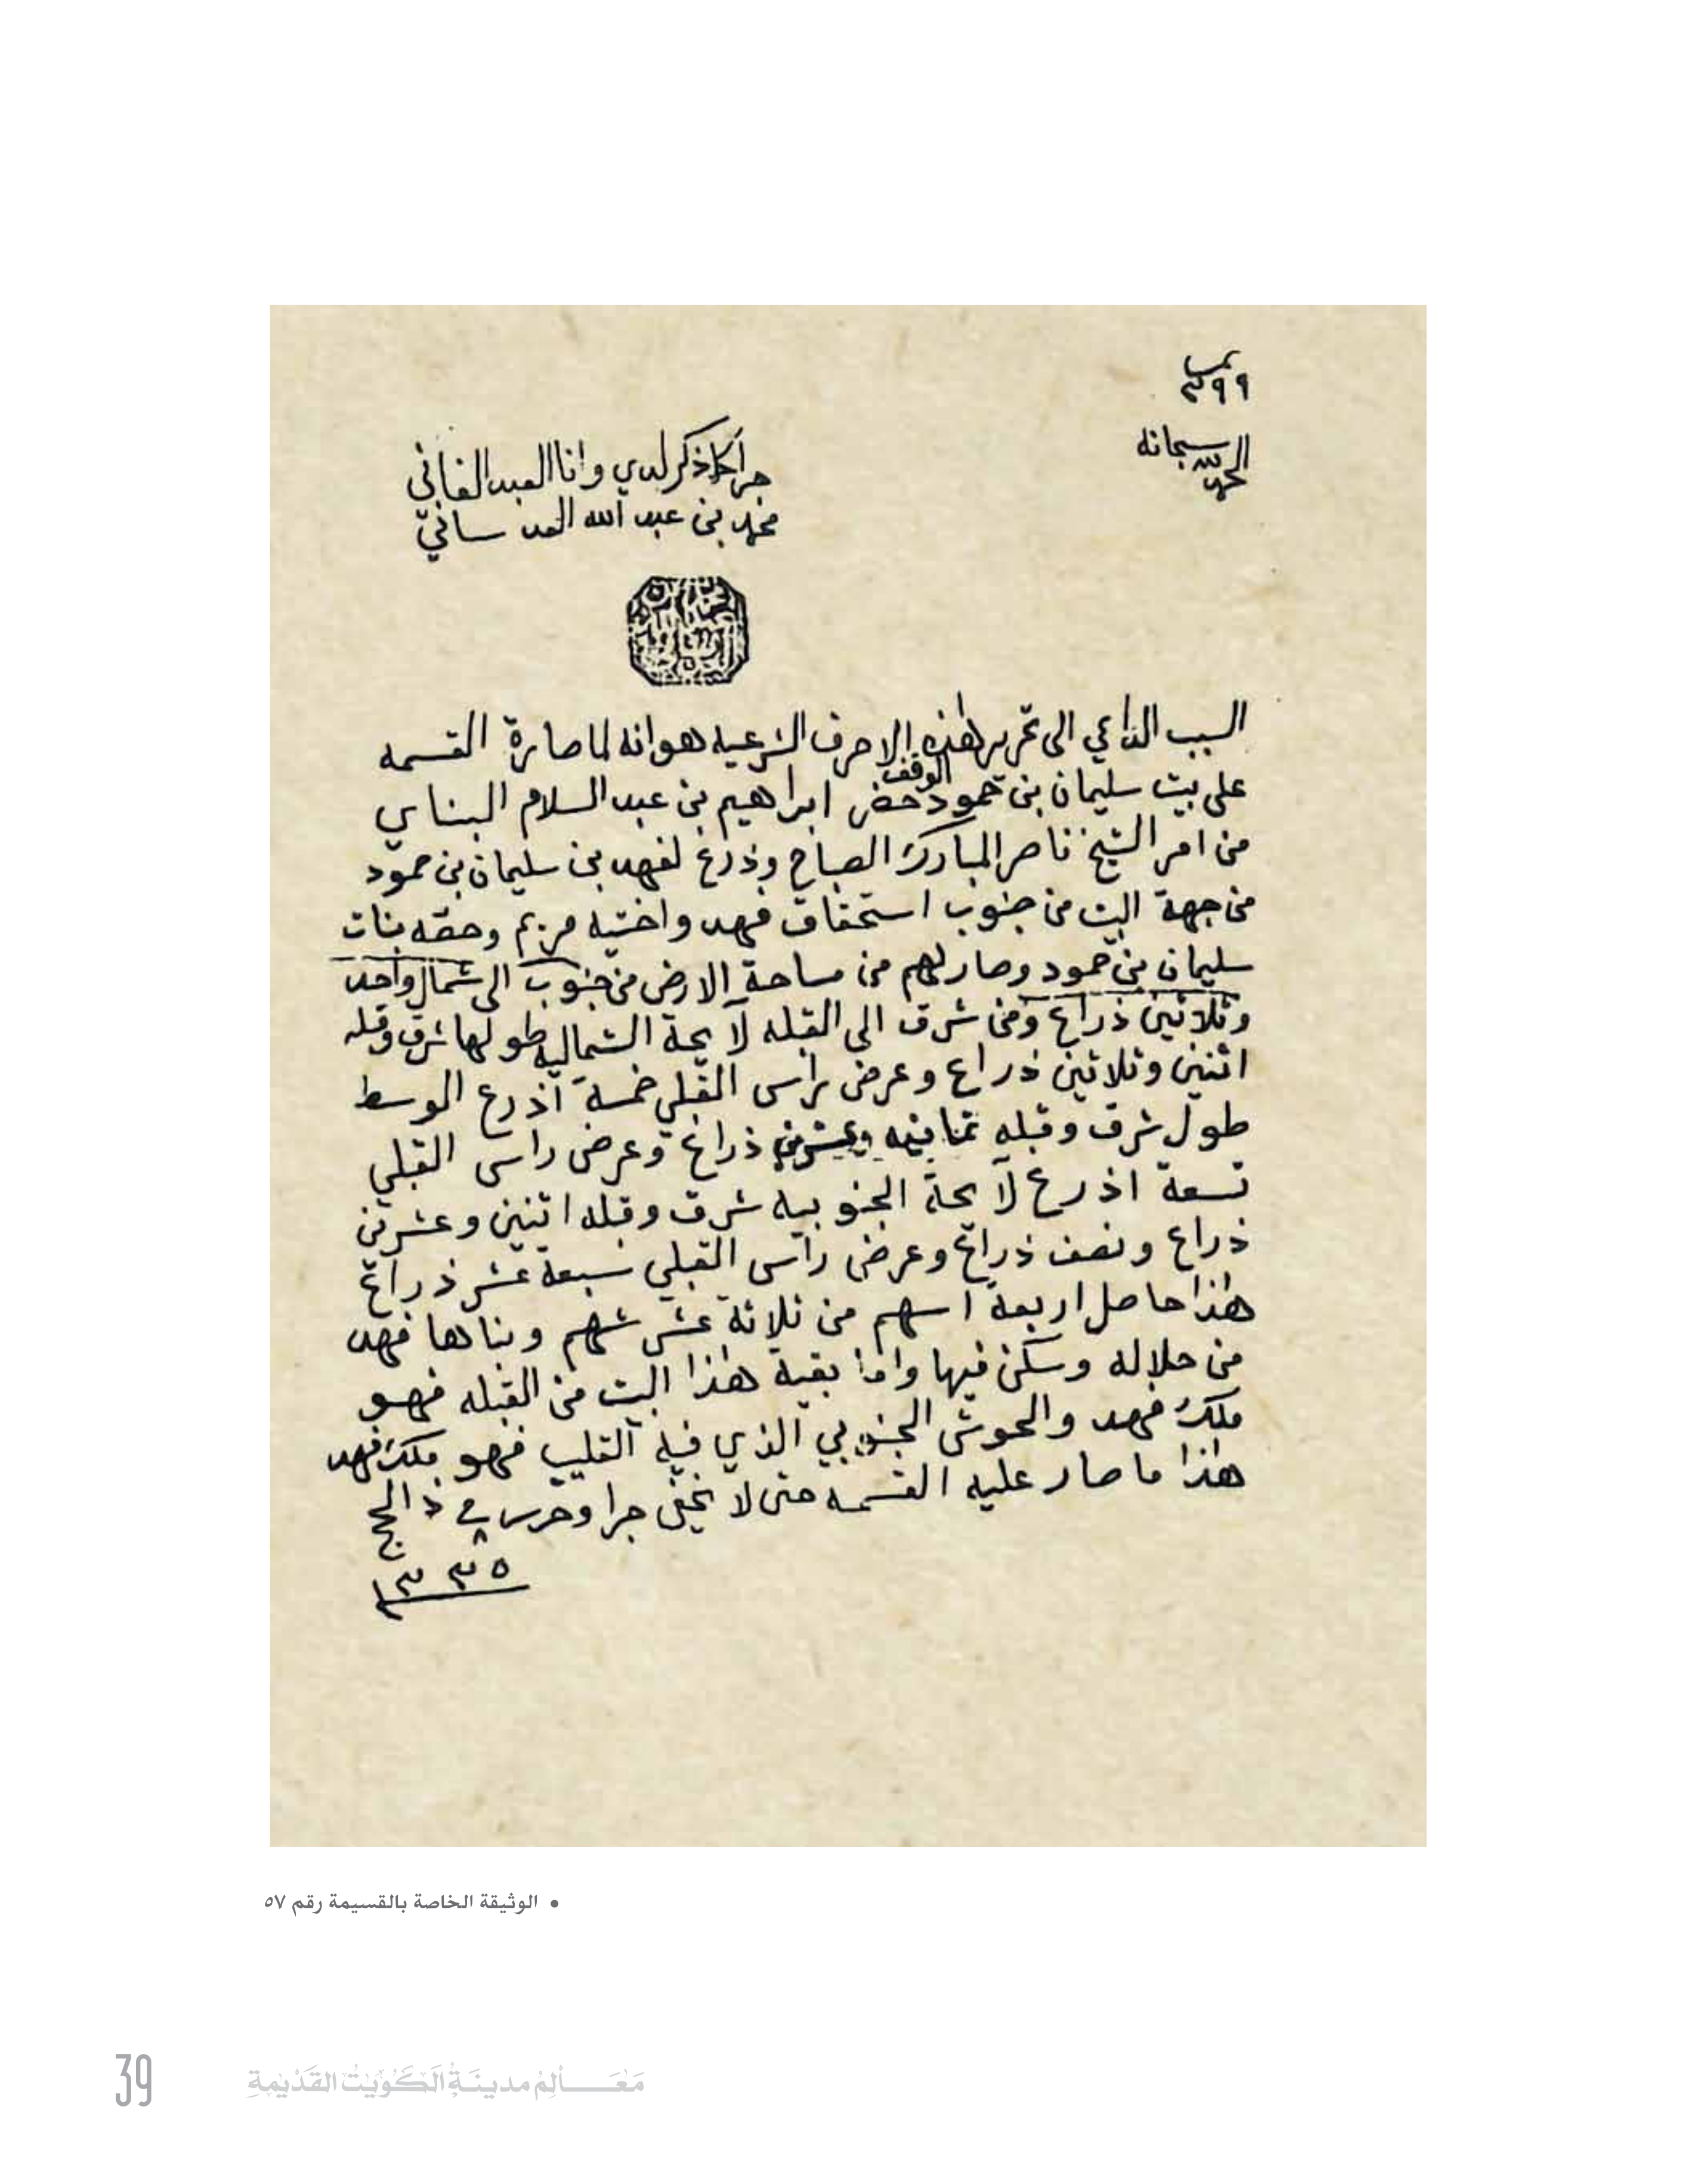 نمـ
٣٩٩
الحمد لله سبحانه
جرا كما ذكر لدي وانا العبد الفاني
محمد بن عبد الله العدساني
السبب الداعي الى تحرير هٰذه الاحرف الشرعيه هو انه لما صارة القسمه
على بيت سليمان بن حمود الوقف حضر ابراهيم بن عبد السلام البناي
من امر الشيخ ناصر المبارك الصباح وذرع لفهد بن سليمان بن حمود
من جهة البيت من جنوب استحقاق فهد واختيه مريم وحصه بنات
سليمان بن حمود وصار لهم من مساحة الارض من جنوب الى شمال واحد
وثلاثين ذراع ومن شرق الى القبله لآيحة الشماليه طولها شرق وقبله
اثنين وثلاثين ذراع وعرض راس القبلي خمسة اذرع الوسط
طول شرق وقبله ثمانيه وعشرين ذراع وعرض راس القبلي
تسعة اذرع لآيحة الجنوبيه شرق وقبله اثنين وعشرين
ذراع ونصف ذراع وعرض راس القبلي سبعة عشر ذراع
هٰذا حاصل اربعة اسهم من ثلاثة عشر سهم وبناها فهد
من حلاله وسكن فيها واما بقية هٰذا البيت من القبله فهو
ملك فهد والحوش الجنوبي الذي فيه القليب فهو ملك فهد
هٰذا ما صار عليه القسمه حتى لا يخفى جرا وحرر في ٨ ذالحج
١٣٣٥
• الوثيقة الخاصة بالقسيمة رقم ٥٧
39 مَعَـــالِمُ مدينَةِ الكُوَيْت القَدِيْمَةِ